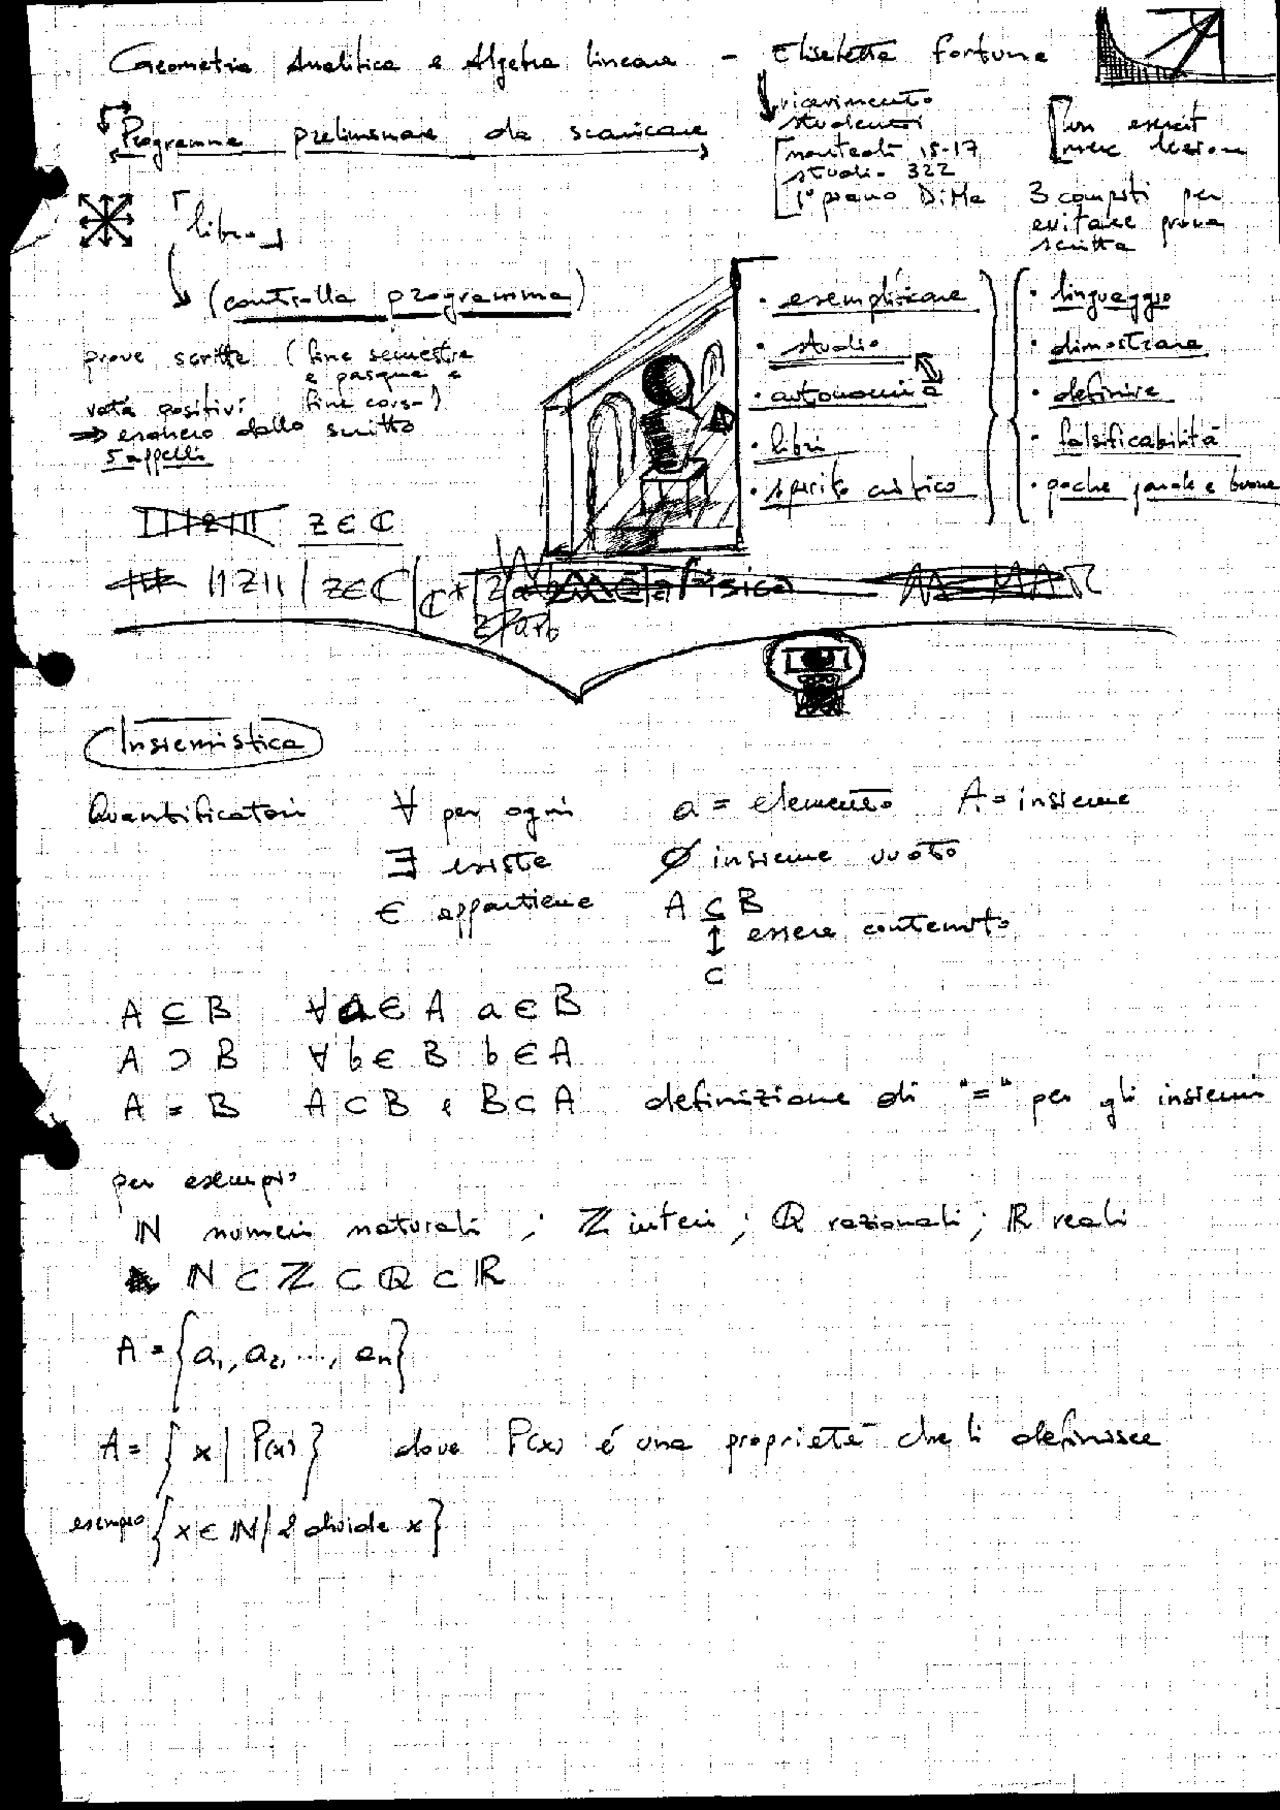 Geometria Analitica e Algebra lineare - Elisabetta Fortuna
Programma preliminare da scaricare
ricevimento
studenti
martedì 15-17
studio 322
1° piano DiMa
un esercit
merc lezione
3 compiti per
evitare prova
scritta
libro
(controlla programma)
prove scritte (fine semestre
e pasqua e
fine corso)
voti positivi
⇒ esonero dallo scritto
5 appelli
• esemplificare
• studio
• autonomia
• libri
• spirito critico
• linguaggio
• dimostrare
• definire
• falsificabilità
• poche parole e buone
z ∈ ℂ
||z|| | z∈ℂ | ℂ*
Insiemistica
Quantificatori ∀ per ogni a = elemento A = insieme
∃ esiste ∅ insieme vuoto
∈ appartiene A ⊆ B
↕ essere contenuto
⊂
A ⊆ B ∀ a ∈ A a ∈ B
A ⊃ B ∀ b ∈ B b ∈ A
A = B A ⊂ B e B ⊂ A definizione di "=" per gli insiemi
per esempio
ℕ numeri naturali ; ℤ interi ; ℚ razionali ; ℝ reali
ℕ ⊂ ℤ ⊂ ℚ ⊂ ℝ
A = {a₁, a₂, ..., aₙ}
A = { x | P(x) } dove P(x) é una proprietà che li definisce
esempio { x ∈ ℕ / 2 divide x }